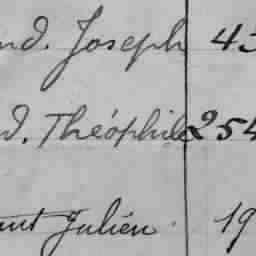 nd. Joseph 45
d. Théophile 254
ant Julien 19